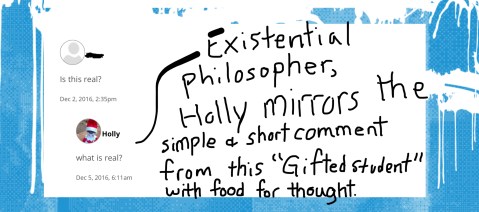 Is this real?
Dec 2, 2016, 2:35pm
Holly
what is real?
Dec 5, 2016, 6:11am
Existential
philosopher,
Holly mirrors the
simple & short comment
from this "Gifted student"
with food for thought.